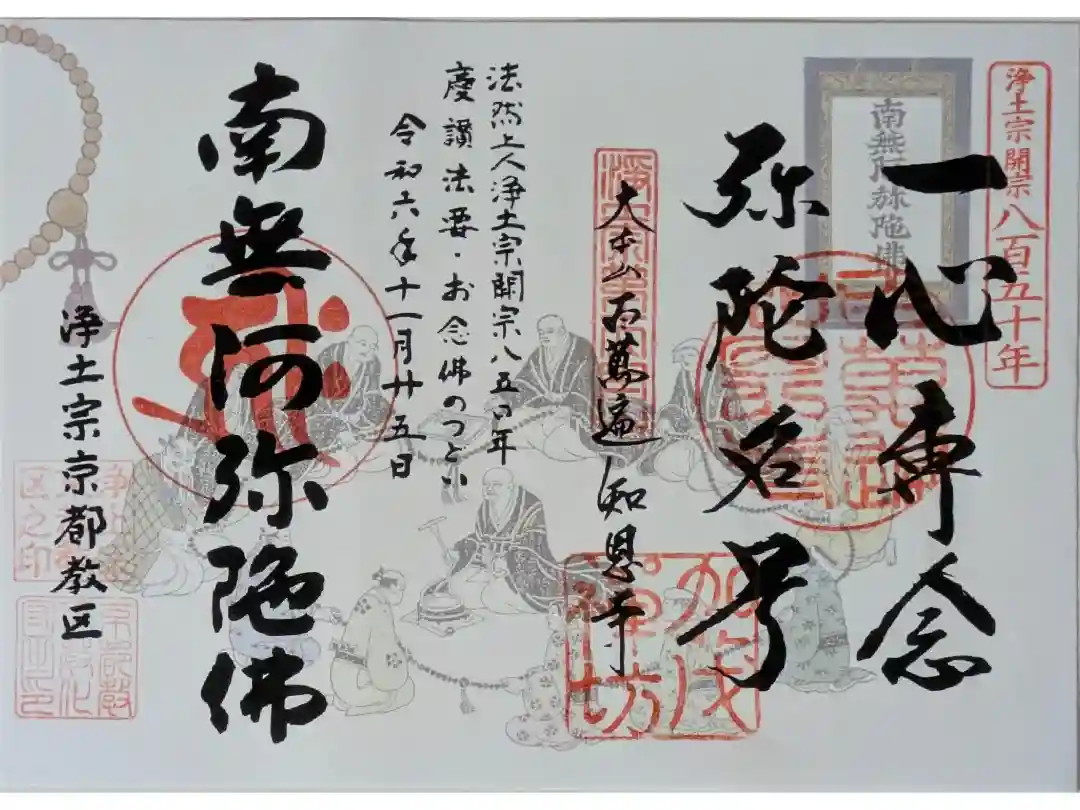 浄土宗開宗八百五十年
南無阿弥陀佛
一心専念
弥陀名号
大本山百萬遍知恩寺
法然上人浄土宗開宗八五〇年
慶讃法要・お念佛のつどい
令和六年十一月廿五日
南無阿弥陀佛
浄土宗京都教区